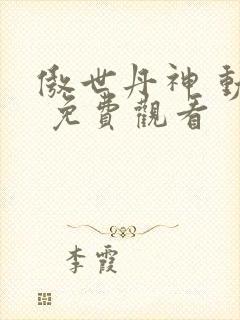 傲世丹神 動
免費觀看
李霞